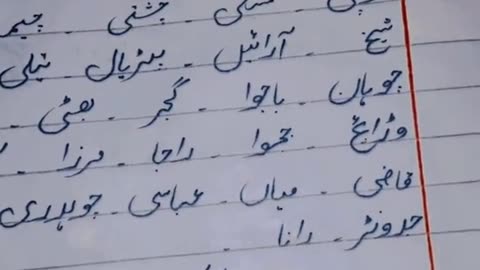 چشتی - چیمہ
شیخ - آرائیں - پڑیال -
چوہان - باجوا - گجر - بھٹی -
وڑائچ - جموا - راجا - مرزا -
قاضی - میاں - عباسی - چوہدری
جدونڑ - رانا -